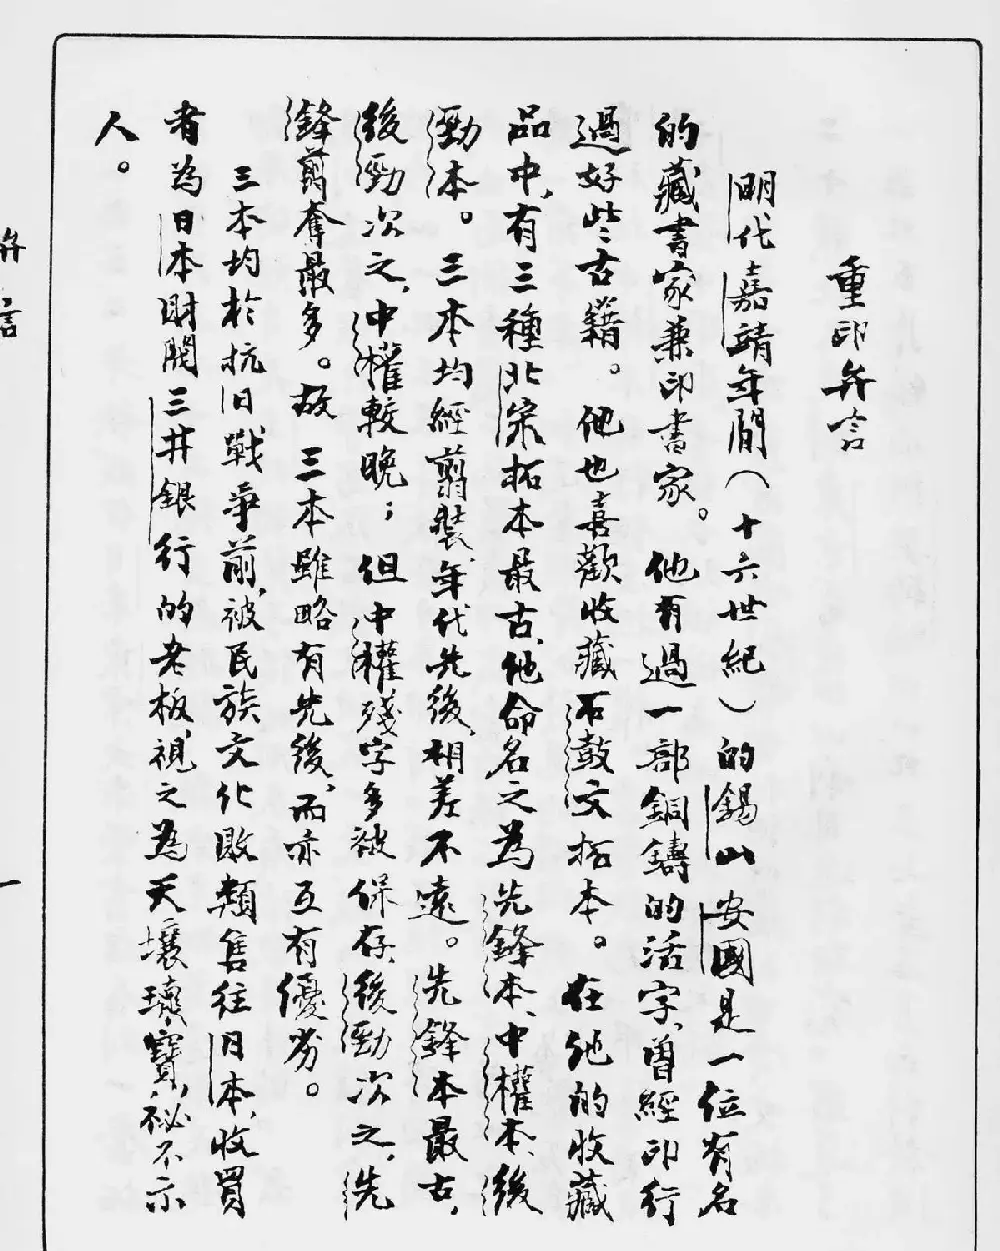 重印弁言
明代嘉靖年間（十六世紀）的錫山安國是一位有名
的藏書家兼印書家。他有過一部銅鑄的活字，曾經印行
過好些古籍。他也喜歡收藏石鼓文拓本。在他的收藏
品中，有三種北宋拓本最古，他命名之為先鋒本、中權本、後
勁本。三本均經翦裝，年代先後，相差不遠。先鋒本最古，
後勁次之，中權較晚；但中權殘字多被保存，後勁次之，先
鋒翦奪最多。故三本雖略有先後，而亦互有優劣。
三本均於抗日戰爭前，被民族文化敗類售往日本，收買
者為日本財閥三井銀行的老板，視之為天壤瓌寶，祕不示
人。
弁言
一